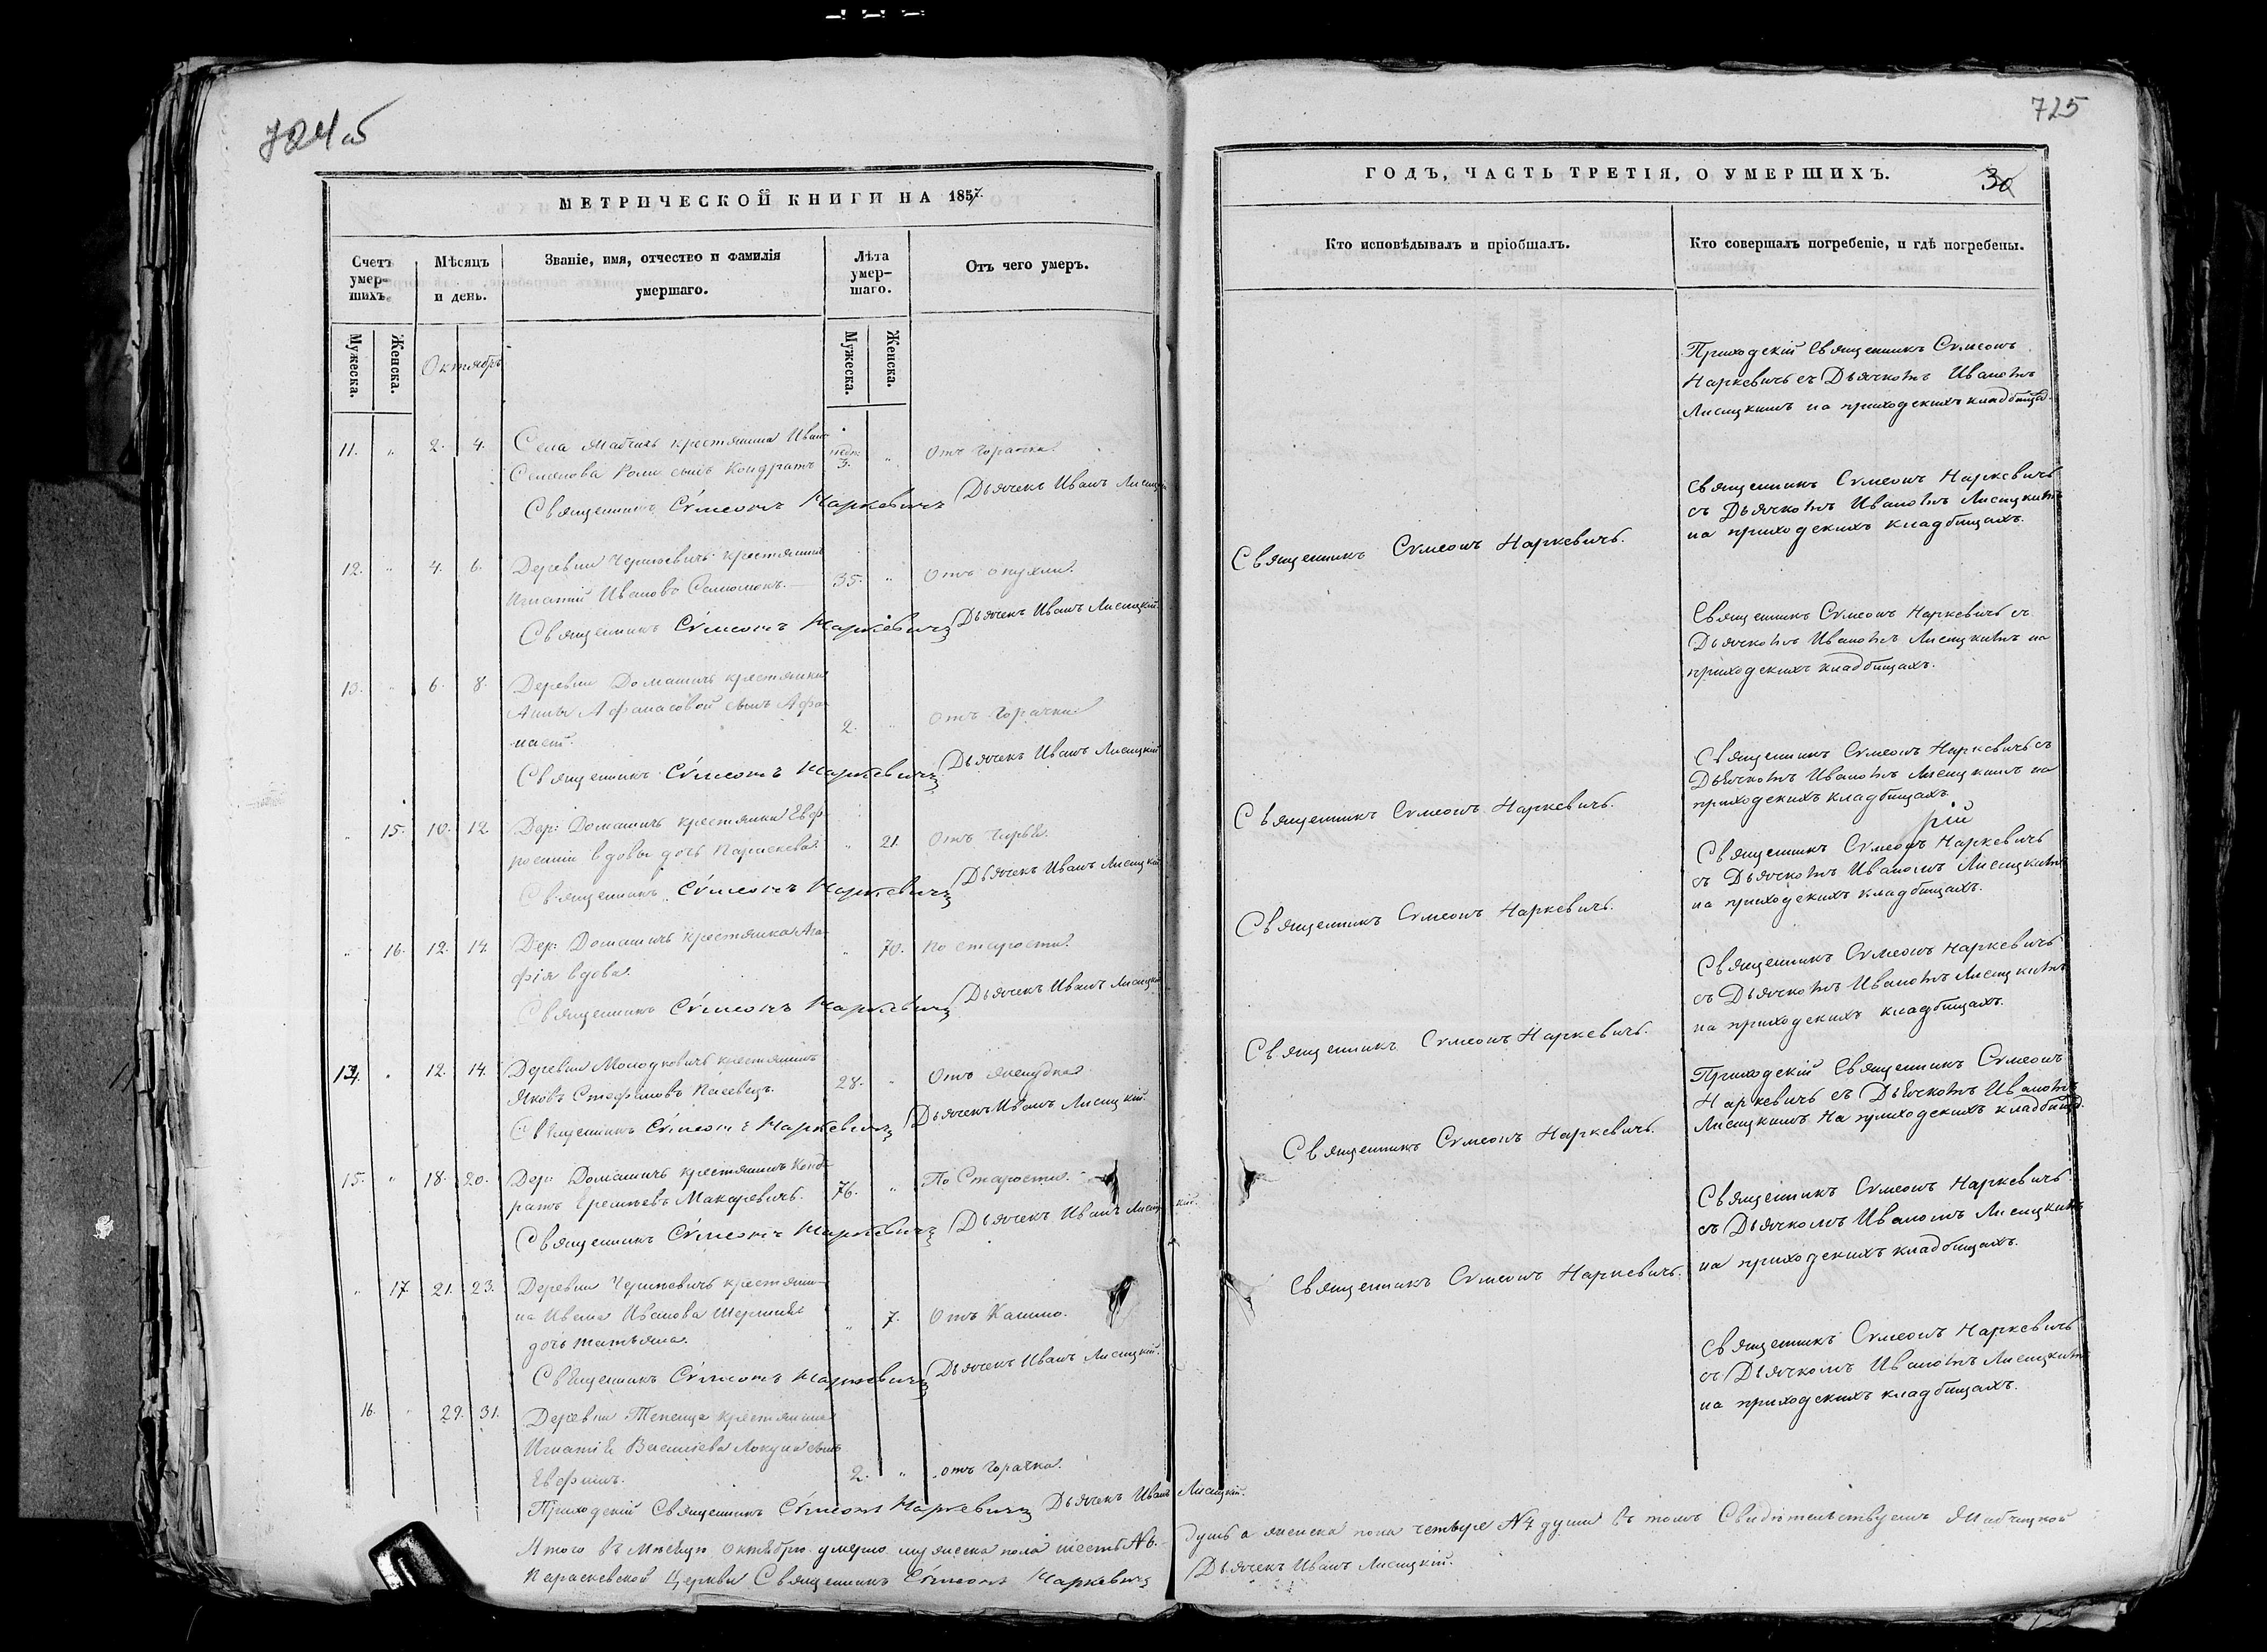 724 об
МЕТРИЧЕСКОЙ КНИГИ НА 1857.
Счетъ умер-шихъ.
Мѣсяцъ и день.
Званіе, имя, отчество и фамилія умершаго.
Лѣта умер-шаго.
Отъ чего умеръ.
Мужеска.
Женска.
Октябрь
Мужеска.
Женска.
11. " 2. 4. Села крестьянина Ивана
Семенова сынъ Кондратъ недѣ. 3. " Отъ горачки.
Священникъ Сѵмеонъ Наркевичъ Дьячекъ Иванъ Лисицкій
12. " 4. 6. Деревни крестьянинъ
Игнатій Ивановъ 35. " Отъ опухли.
Священникъ Сѵмеонъ Наркевичъ Дьячекъ Иванъ Лисицкій.
13. " 6. 8. Деревни Домашичъ крестьянки
Анны Афанасовой сынъ Афа-
насій. 2. " Отъ горачки
Священникъ Сѵмеонъ Наркевичъ Дьячекъ Иванъ Лисицкій
" 15. 10. 12. Дер: Домашичъ крестьянки Евф-
росиніи вдовы дочь Параскева. " 21. Отъ
Священникъ Сѵмеонъ Наркевичъ Дьячекъ Иванъ Лисицкій
" 16. 12. 14. Дер: Домашичъ крестьянка Ага-
фія вдова. " 70. По старости.
Священникъ Сѵмеонъ Наркевичъ Дьячекъ Иванъ Лисицкій
14. " 12. 14. Деревни Молодковичъ крестьянинъ
Яковъ Стефановъ 28. " Отъ желудка.
Священникъ Сѵмеонъ Наркевичъ Дьячекъ Иванъ Лисицкій.
15. " 18. 20. Дер: Домашичъ крестьянинъ Конд-
ратъ Макаревичъ. 76. " По Старости.
Священникъ Сѵмеонъ Наркевичъ Дьячекъ Иванъ Лисицкій.
" 17 21. 23. Деревни крестьяни-
на Ивана Иванова
дочь Татьяна. " 7. Отъ Кашлю.
Священникъ Сѵмеонъ Наркевичъ Дьячекъ Иванъ Лисицкій.
16. " 29. 31. Деревни крестьянина
Игнатія Василіева сынъ
2. " отъ горачки.
Приходскій Священникъ Сѵмеонъ Наркевичъ Дьячекъ Иванъ Лисицкій.
Итого въ мѣсяцѣ Октябрѣ умерло мужеска пола шесть №6. душъ а женска пола четыре №4 души въ томъ Свидѣтельствуемъ
Параскевской Церкви Священникъ Сѵмеонъ Наркевичъ Дьячекъ Иванъ Лисицкій.
725
ГОДЪ, ЧАСТЬ ТРЕТІЯ, О УМЕРШИХЪ.
30
Кто исповѣдывалъ и пріобщалъ.
Кто совершалъ погребеніе, и гдѣ погребены.
Приходскій Священникъ Сѵмеонъ
Наркевичъ съ Дьячкомъ Иваномъ
Лисицкимъ на приходскихъ кладбищахъ.
Священникъ Сѵмеонъ Наркевичъ.
Священникъ Сѵмеонъ Наркевичъ
съ Дьячкомъ Иваномъ Лисицкимъ
на приходскихъ кладбищахъ.
Священникъ Сѵмеонъ Наркевичъ съ
Дьячкомъ Иваномъ Лисицкимъ на
приходскихъ кладбищахъ.
Священникъ Сѵмеонъ Наркевичъ.
Священникъ Сѵмеонъ Наркевичъ съ
Дьячкомъ Иваномъ Лисицкимъ на
приходскихъ кладбищахъ.
рій
Священникъ Сѵмеонъ Наркевичъ.
Священникъ Сѵмеонъ Наркевичъ
съ Дьячкомъ Иваномъ Лисицкимъ
на приходскихъ кладбищахъ.
Священникъ Сѵмеонъ Наркевичъ.
Священникъ Сѵмеонъ Наркевичъ
съ Дьячкомъ Иваномъ Лисицкимъ
на приходскихъ кладбищахъ.
Священникъ Сѵмеонъ Наркевичъ.
Приходскій Священникъ Сѵмеонъ
Наркевичъ съ Дьячкомъ Иваномъ
Лисицкимъ на приходскихъ кладбищ.
Священникъ Сѵмеонъ Наркевичъ.
Священникъ Сѵмеонъ Наркевичъ
съ Дьячкомъ Иваномъ Лисицкимъ
на приходскихъ кладбищахъ.
Священникъ Сѵмеонъ Наркевичъ
съ Дьячкомъ Иваномъ Лисицкимъ
на приходскихъ кладбищахъ.